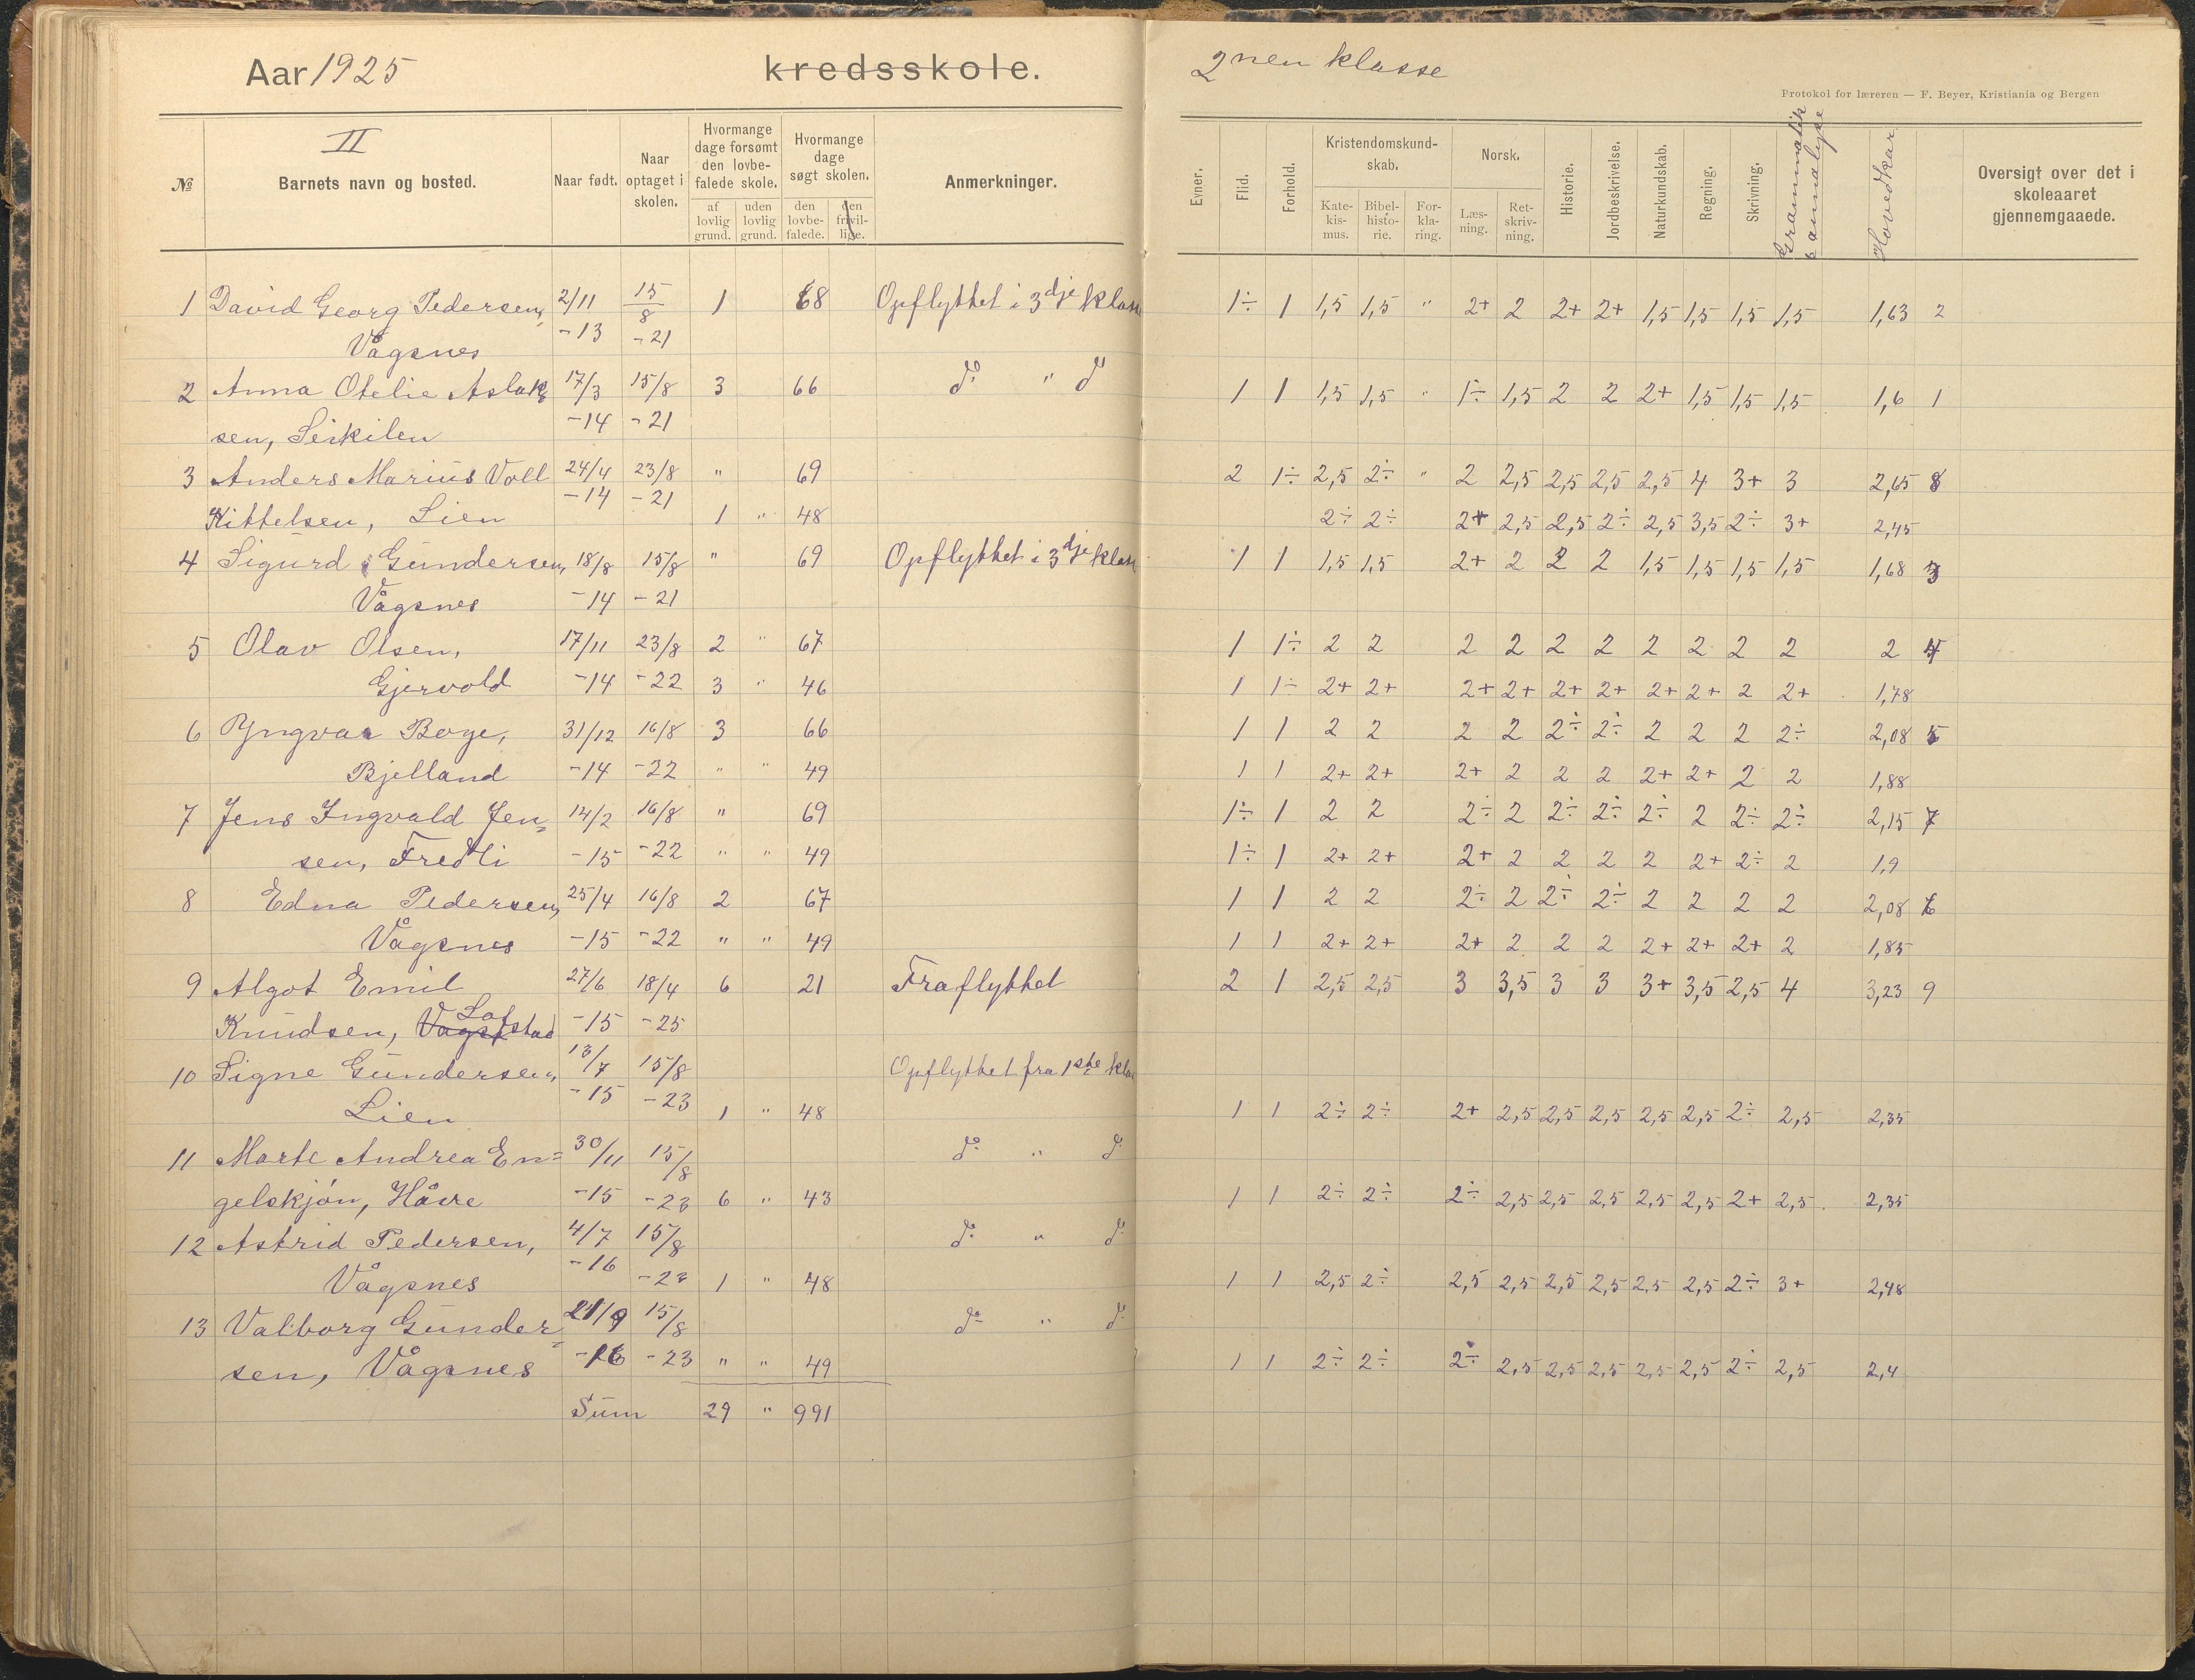 Aar 1925 kredsskole.
II
№ Barnets navn og bosted. Naar født. Naar optaget i skolen. Hvormange dage forsømt den lovbe- falede skole. af lovlig grund. uden lovlig grund. Hvormange dage søgt skolen. den lovbe- falede. den frivil- lige. Anmerkninger.
1 David Georg Pedersen, 2/11 15/8 1 68 Opflyttet i 3dje klasse
Vågsnes -13 -21
2 Anna Otelie Aslak= 17/3 15/8 3 66 do " do
sen, Leikilen -14 -21
3 Anders Marius Voll 24/4 23/8 " 69
Kittelsen, Lien -14 -21 1 " 48
4 Sigurd Gundersen, 18/8 15/8 " 69 Opflyttet i 3dje klasse
Vågsnes -14 -21
5 Olav Olsen, 17/11 23/8 2 " 67
Gjervold -14 -22 3 " 46
6 Yngvar Boye, 31/12 16/8 3 66
Bjelland -14 -22 " " 49
7 Jens Ingvald Jen= 14/2 16/8 " 69
sen, Fredli -15 -22 " " 49
8 Edna Pedersen, 25/4 16/8 2 67
Vågsnes -15 -22 " " 49
9 Algot Emil 27/6 18/4 6 21 Fraflyttet
Knudsen, -15 -25
10 Signe Gundersen, 13/7 15/8 Opflyttet fra 1ste klas
Lien -15 -23 1 " 48
11 Marte Andrea En= 30/11 15/8 do " do
gelskjön, Håvre -15 -23 6 " 43
12 Astrid Pedersen, 4/7 15/8 do " do
Vågsnes -16 -23 1 " 48
13 Valborg Gunder= 21/9 15/8 do " do
sen, Vågsnes -16 -23 " " 49
Sum 29 " 991
2nen klasse
Protokol for læreren — F. Beyer, Kristiania og Bergen
Evner. Flid. Forhold. Kristendomskund- skab. Kate- kis- mus. Bibel- histo- rie. For- kla- ring. Norsk. Læs- ning. Ret- skriv- ning. Historie. Jordbeskrivelse. Naturkundskab. Regning. Skrivning. Grammatik & annalyse Hovedkar Oversigt over det i skoleaaret gjennemgaaede.
1÷ 1 1,5 1,5 " 2+ 2 2+ 2+ 1,5 1,5 1,5 1,5 1,63 2
1 1 1,5 1,5 " 1÷ 1,5 2 2 2+ 1,5 1,5 1,5 1,6 1
2 1÷ 2,5 2÷ " 2 2,5 2,5 2,5 2,5 4 3+ 3 2,65 8
2÷ 2÷ 2+ 2,5 2,5 2÷ 2,5 3,5 2÷ 3+ 2,45
1 1 1,5 1,5 2+ 2 2 2 1,5 1,5 1,5 1,5 1,68 3
1 1÷ 2 2 2 2 2 2 2 2 2 2 2 4
1 1÷ 2+ 2+ 2+ 2+ 2+ 2+ 2+ 2+ 2 2+ 1,78
1 1 2 2 2 2 2÷ 2÷ 2 2 2 2÷ 2,08 5
1 1 2+ 2+ 2+ 2 2 2 2+ 2+ 2 2 1,88
1÷ 1 2 2 2÷ 2 2÷ 2÷ 2÷ 2 2÷ 2÷ 2,15 7
1÷ 1 2+ 2+ 2+ 2 2 2 2 2+ 2÷ 2 1,9
1 1 2 2 2÷ 2 2÷ 2÷ 2 2 2 2 2,08 6
1 1 2+ 2+ 2+ 2 2 2 2+ 2+ 2+ 2 1,85
2 1 2,5 2,5 3 3,5 3 3 3+ 3,5 2,5 4 3,23 9
1 1 2÷ 2÷ 2+ 2,5 2,5 2,5 2,5 2,5 2÷ 2,5 2,35
1 1 2÷ 2÷ 2÷ 2,5 2,5 2,5 2,5 2,5 2+ 2,5 2,35
1 1 2,5 2÷ 2,5 2,5 2,5 2,5 2,5 2,5 2÷ 3+ 2,48
1 1 2÷ 2÷ 2÷ 2,5 2,5 2,5 2,5 2,5 2÷ 2,5 2,4